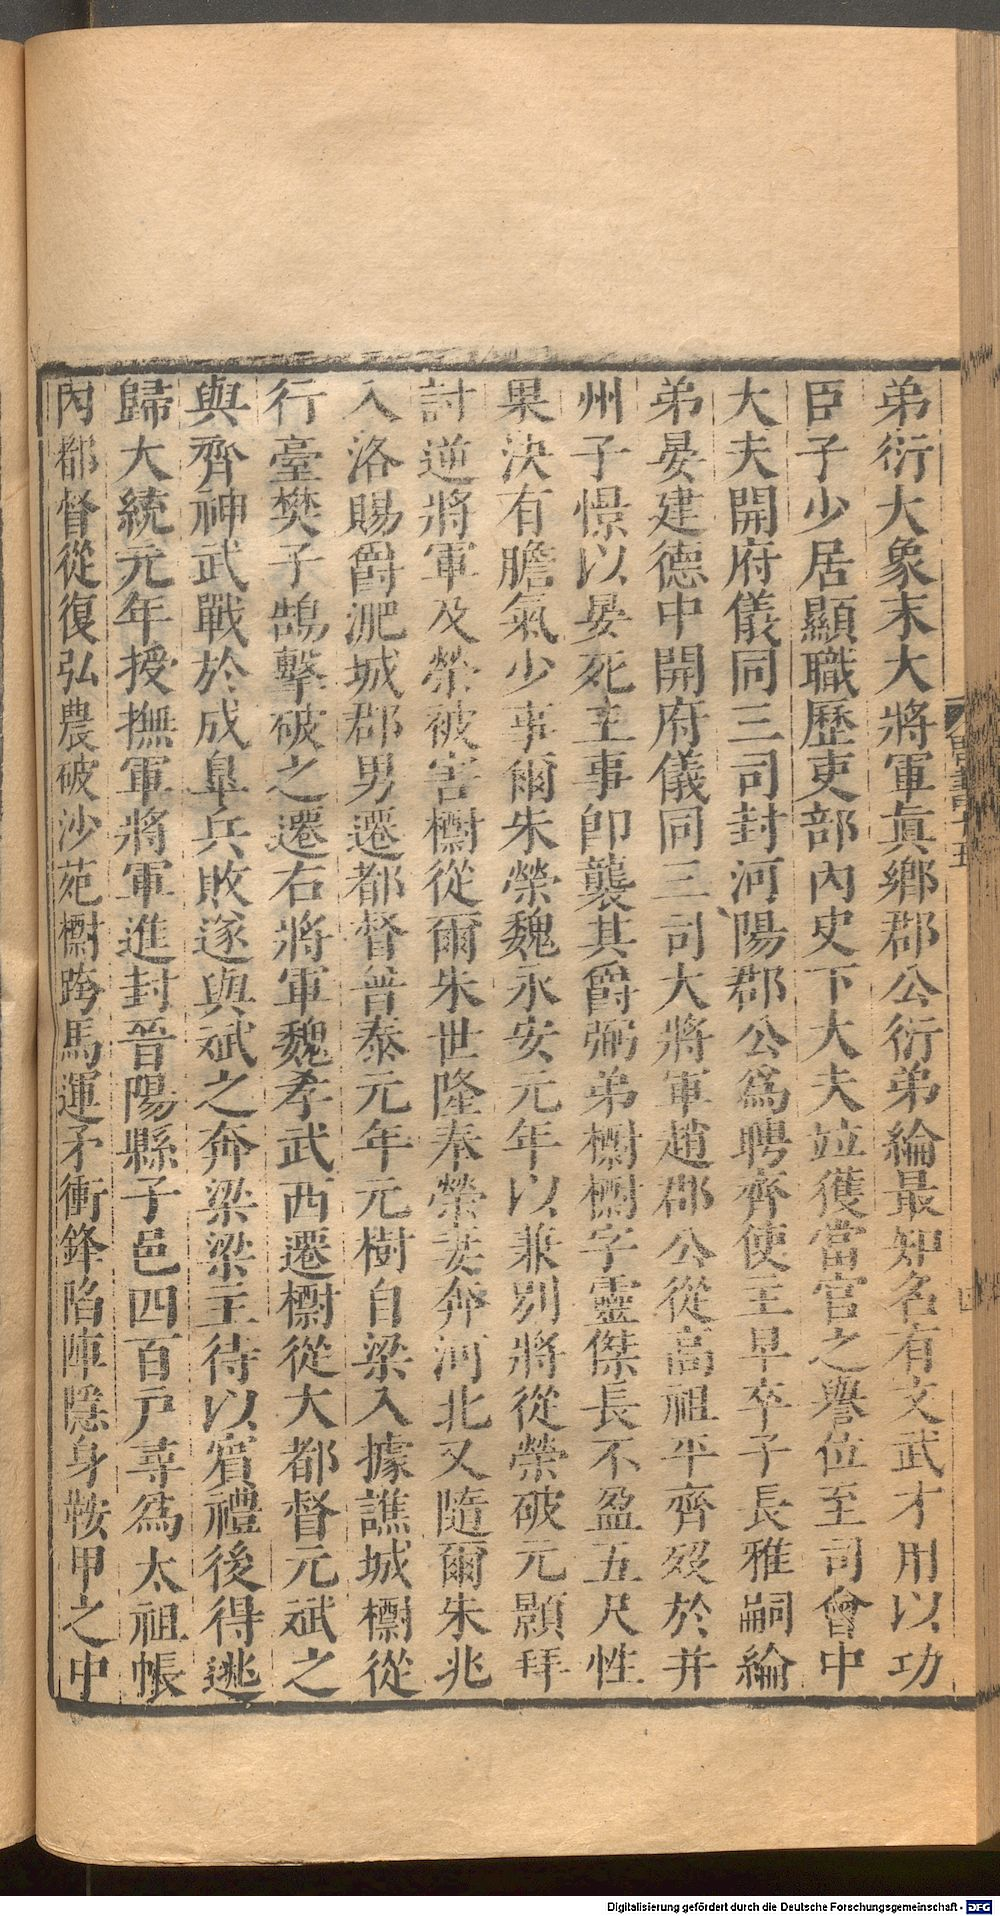 弟衍大象末大將軍眞鄉郡公衍弟綸最知名有文武才用以功
臣子少居顯職歷吏部內史下大夫竝獲當官之譽位至司會中
大夫開府儀同三司封河陽郡公爲聘齊使主早卒子長雅嗣綸
弟晏建德中開府儀同三司大將軍趙郡公從高祖平齊歿於并
州子憬以晏死王事卽襲其爵弼弟檦檦字靈傑長不盈五尺性
果決有膽氣少事爾朱榮魏永安元年以兼別將從榮破元顥拜
討逆將軍及榮被害檦從爾朱世隆奉榮妻奔河北又隨爾朱兆
入洛賜爵淝城郡男遷都督普泰元年元樹自梁入據譙城檦從
行臺樊子鵠擊破之遷右將軍魏孝武西遷檦從大都督元斌之
與齊神武戰於成皐兵敗遂與斌之奔梁梁主待以賓禮後得逃
歸大統元年授撫軍將軍進封晉陽縣子邑四百戶尋爲太祖帳
內都督從復弘農破沙苑檦跨馬運矛衝鋒陷陣隱身鞍甲之中
Digitalisierung gefördert durch die Deutsche Forschungsgemeinschaft - DFG